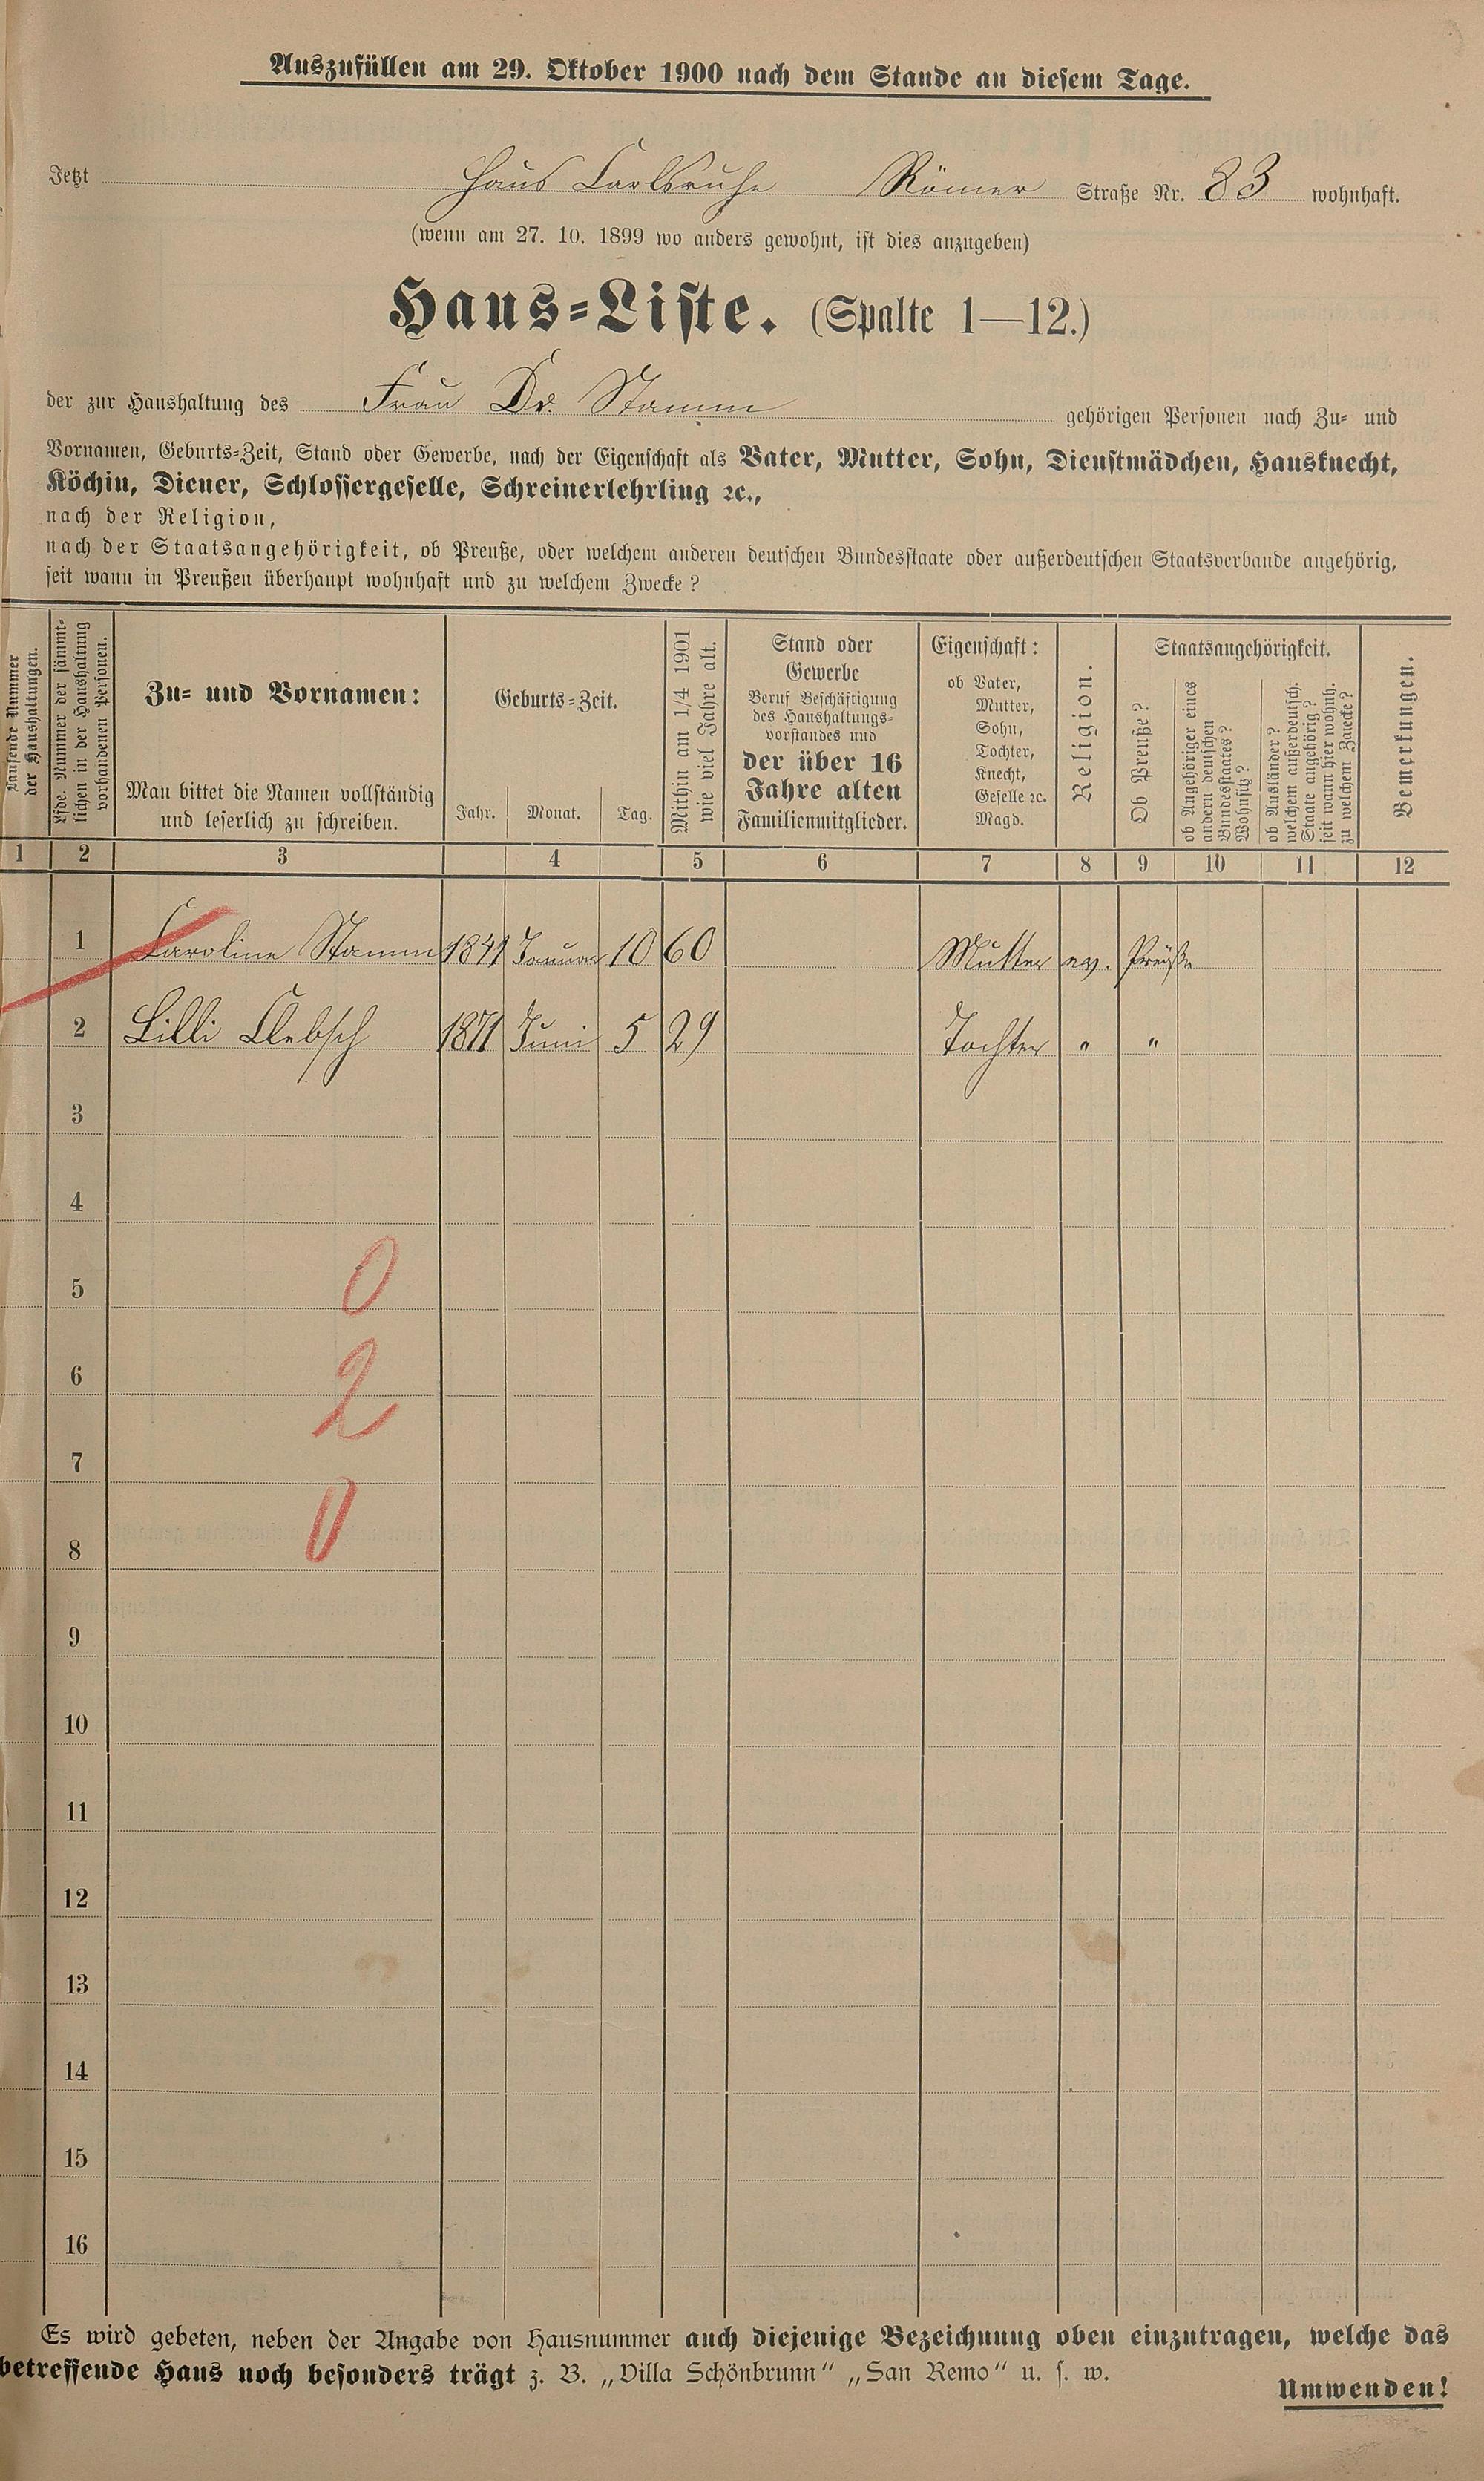 Auszufüllen am 29. Oktober 1900 nach dem Stande an diesem Tage.
Jetzt Haus Carlsruhe Römer Straße Nr. 83 wohnhaft.
(wenn am 27. 10. 1899 wo anders gewohnt, ist dies anzugeben)
Haus-Liste. (Spalte 1—12.)
der zur Haushaltung des Frau Dr. Stamm gehörigen Personen nach Zu- und
Vornamen, Geburts-Zeit, Stand oder Gewerbe, nach der Eigenschaft als Vater, Mutter, Sohn, Dienstmädchen, Hausknecht,
Köchin, Diener, Schlossergeselle, Schreinerlehrling ꝛc.,
nach der Religion,
nach der Staatsangehörigkeit, ob Preuße, oder welchem anderen deutschen Bundesstaate oder außerdeutschen Staatsverbande angehörig,
seit wann in Preußen überhaupt wohnhaft und zu welchem Zwecke?
Laufende Nummer
der Haushaltungen.
Lfde. Nummer der sämmt-
lichen in der Haushaltung
vorhandenen Personen.
Zu- und Vornamen:
Man bittet die Namen vollständig
und leserlich zu schreiben.
Geburts-Zeit.
Jahr. Monat. Tag.
Mithin am 1/4 1901
wie viel Jahre alt.
Stand oder
Gewerbe
Beruf Beschäftigung
des Haushaltungs-
vorstandes und
der über 16
Jahre alten
Familienmitglieder.
Eigenschaft:
ob Vater,
Mutter,
Sohn,
Tochter,
Knecht,
Geselle ꝛc.
Magd.
Religion.
Staatsangehörigkeit.
Ob Preuße?
ob Angehöriger eines
andern deutschen
Bundesstaates?
Wohnsitz?
ob Ausländer?
welchem außerdeutsch.
Staate angehörig?
seit wann hier wohnh.
zu welchem Zwecke?
Bemerkungen.
1 2 3 4 5 6 7 8 9 10 11 12
1 Caroline Stamm 1841 Januar 10 60 Mutter ev. Preuße
2 Lilli Clebsch 1871 Juni 5 29 Tochter " "
3
4
5
0
6
2
7
0
8
9
10
11
12
13
14
15
16
Es wird gebeten, neben der Angabe von Hausnummer auch diejenige Bezeichnung oben einzutragen, welche das
betreffende Haus noch besonders trägt z. B. „Villa Schönbrunn“ „San Remo“ u. s. w.
Umwenden!